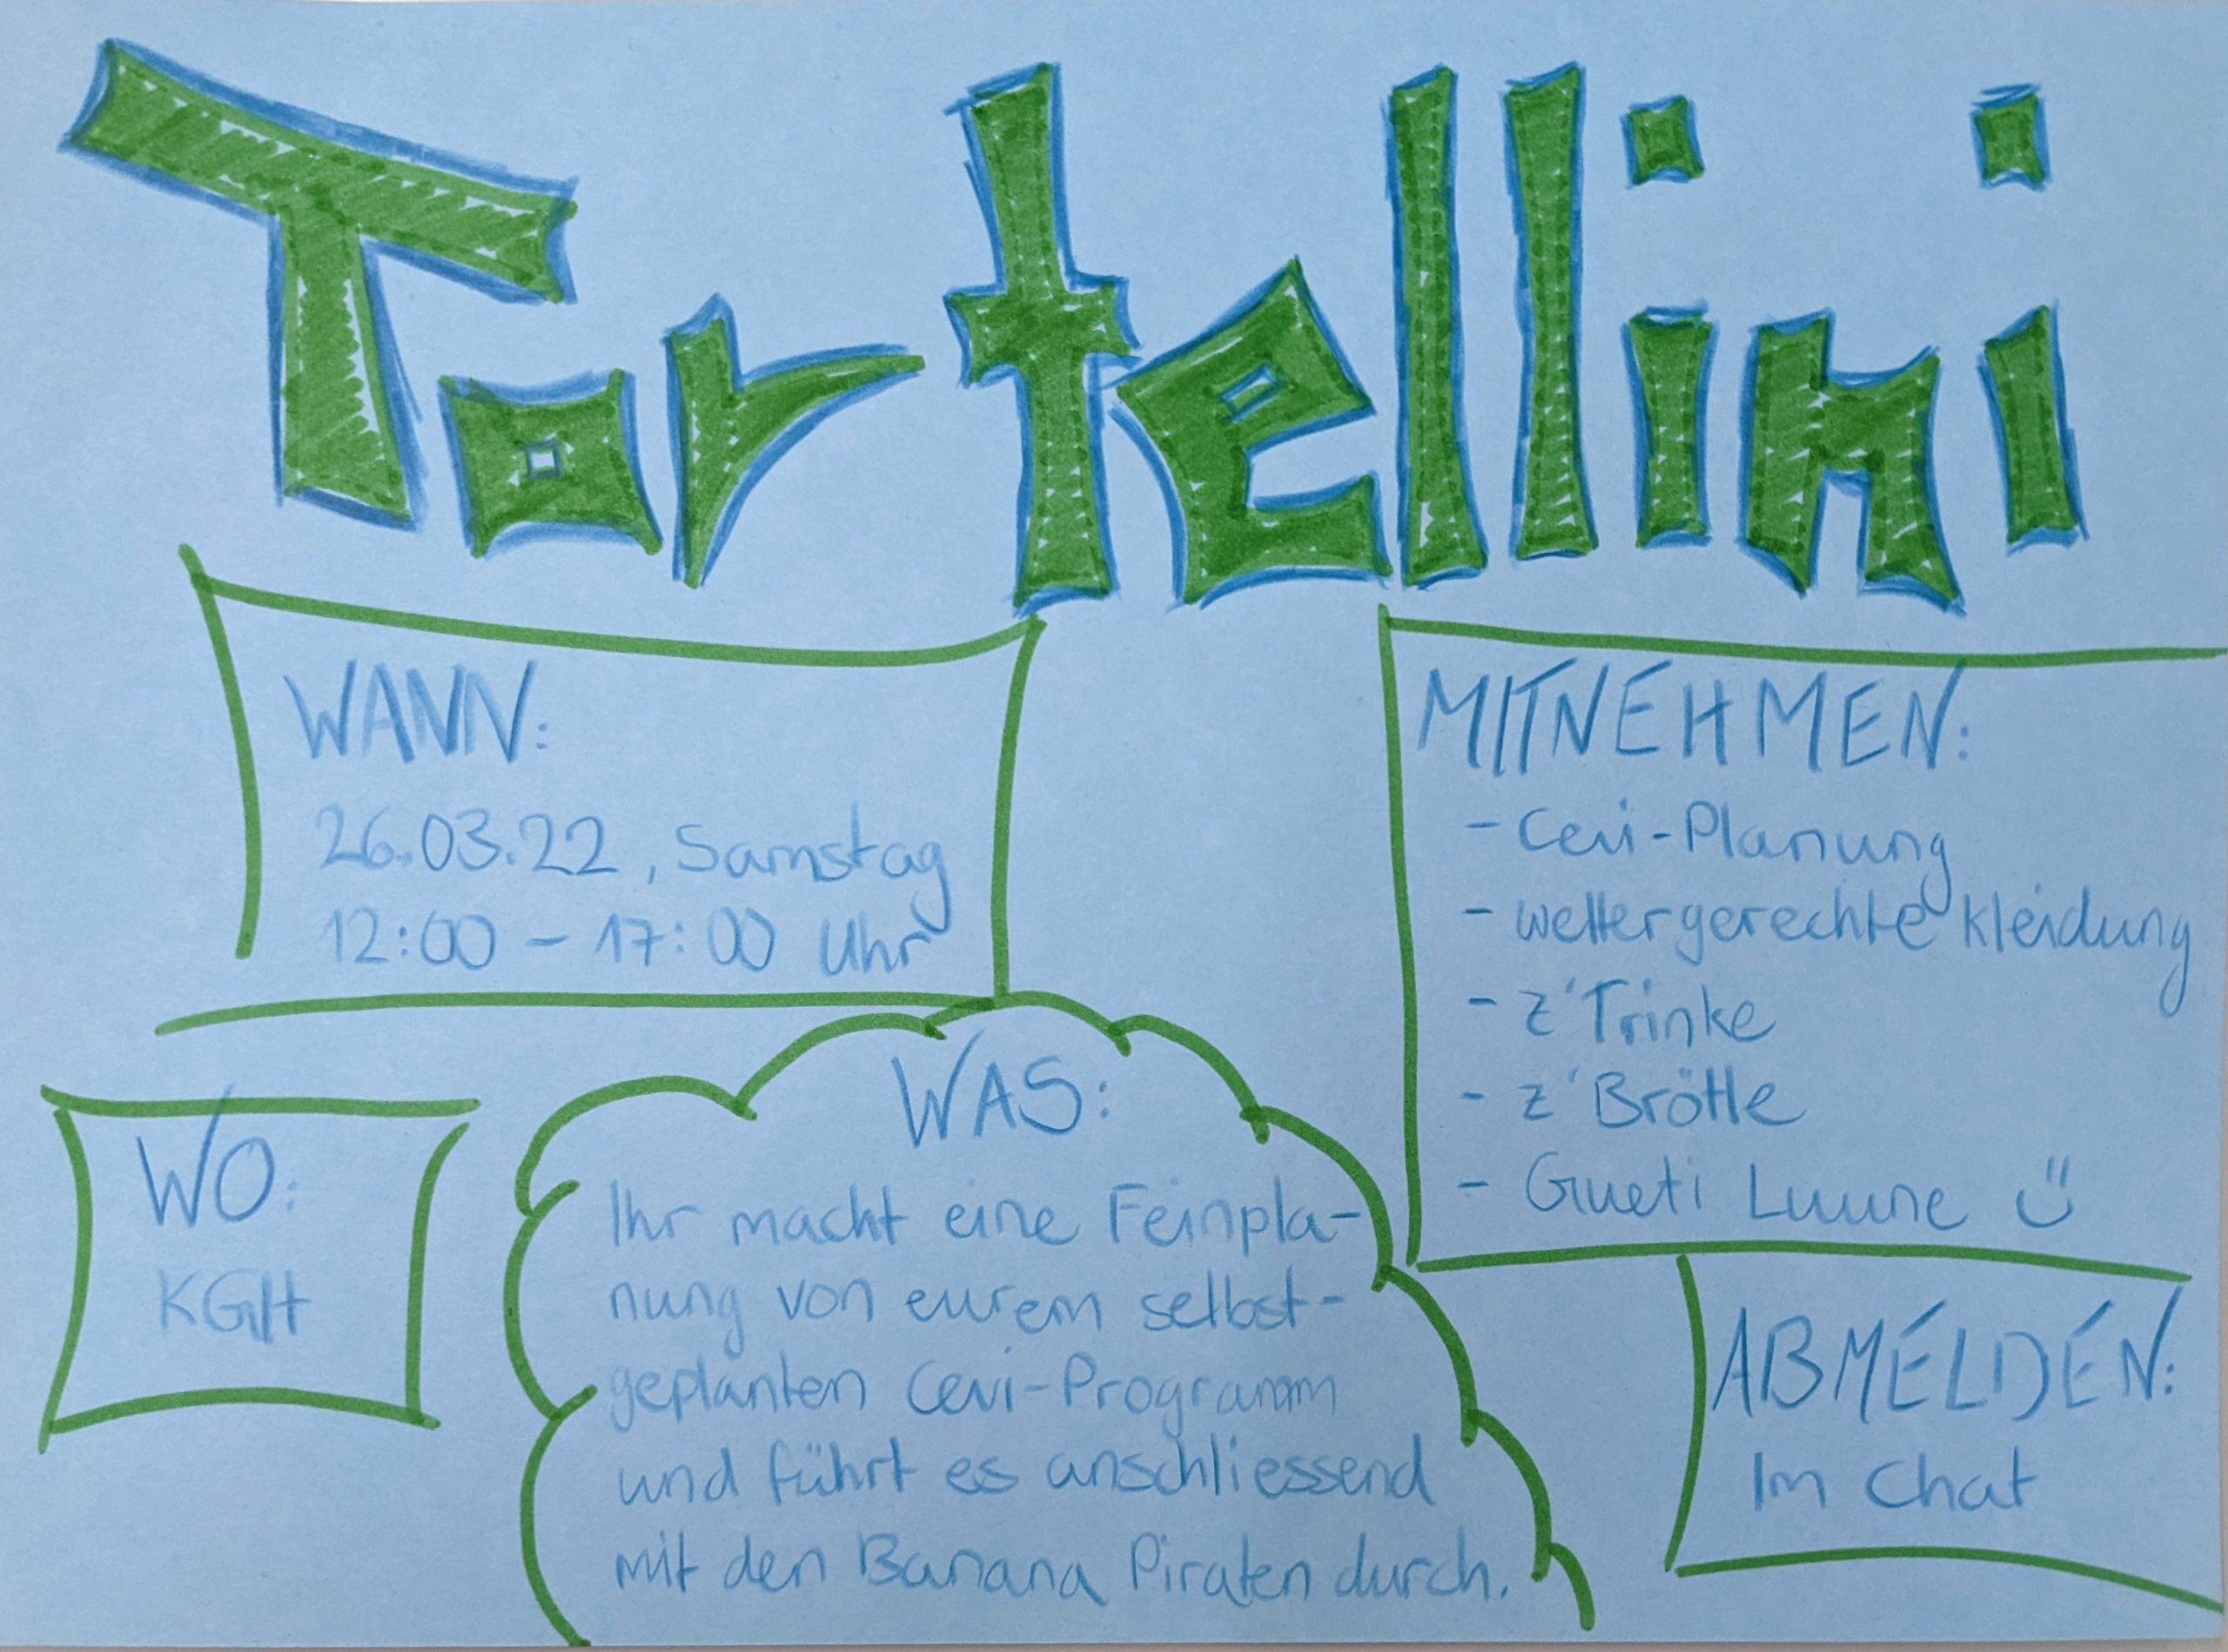 Tortellini
WANN:
26.03.22, Samstag
12:00 - 17:00 Uhr
MITNEHMEN:
- Cevi-Planung
- wettergerechte Kleidung
- z'Trinke
- z'Brötle
- Gueti Luune ü
WO:
KGH
WAS:
Ihr macht eine Feinpla-
nung von eurem selbst-
geplanten Cevi-Programm
und führt es anschliessend
mit den Banana Piraten durch.
ABMELDEN:
Im Chat